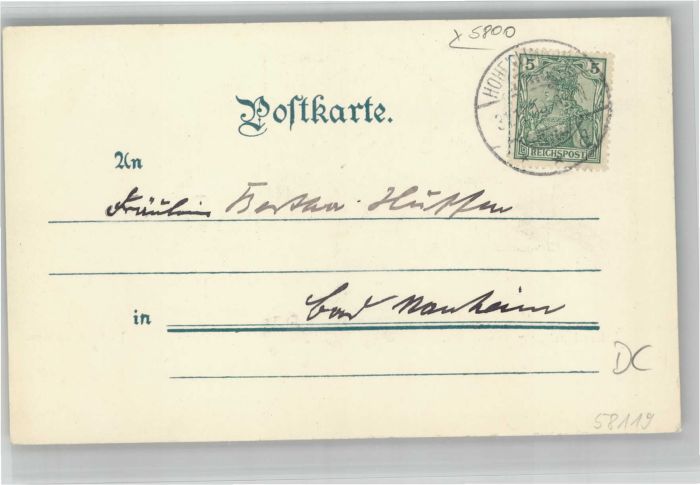 x 5800
5 5
REICHSPOST
Postkarte.
An
Fräulein Bertha
in Bad Nauheim
DC
58119